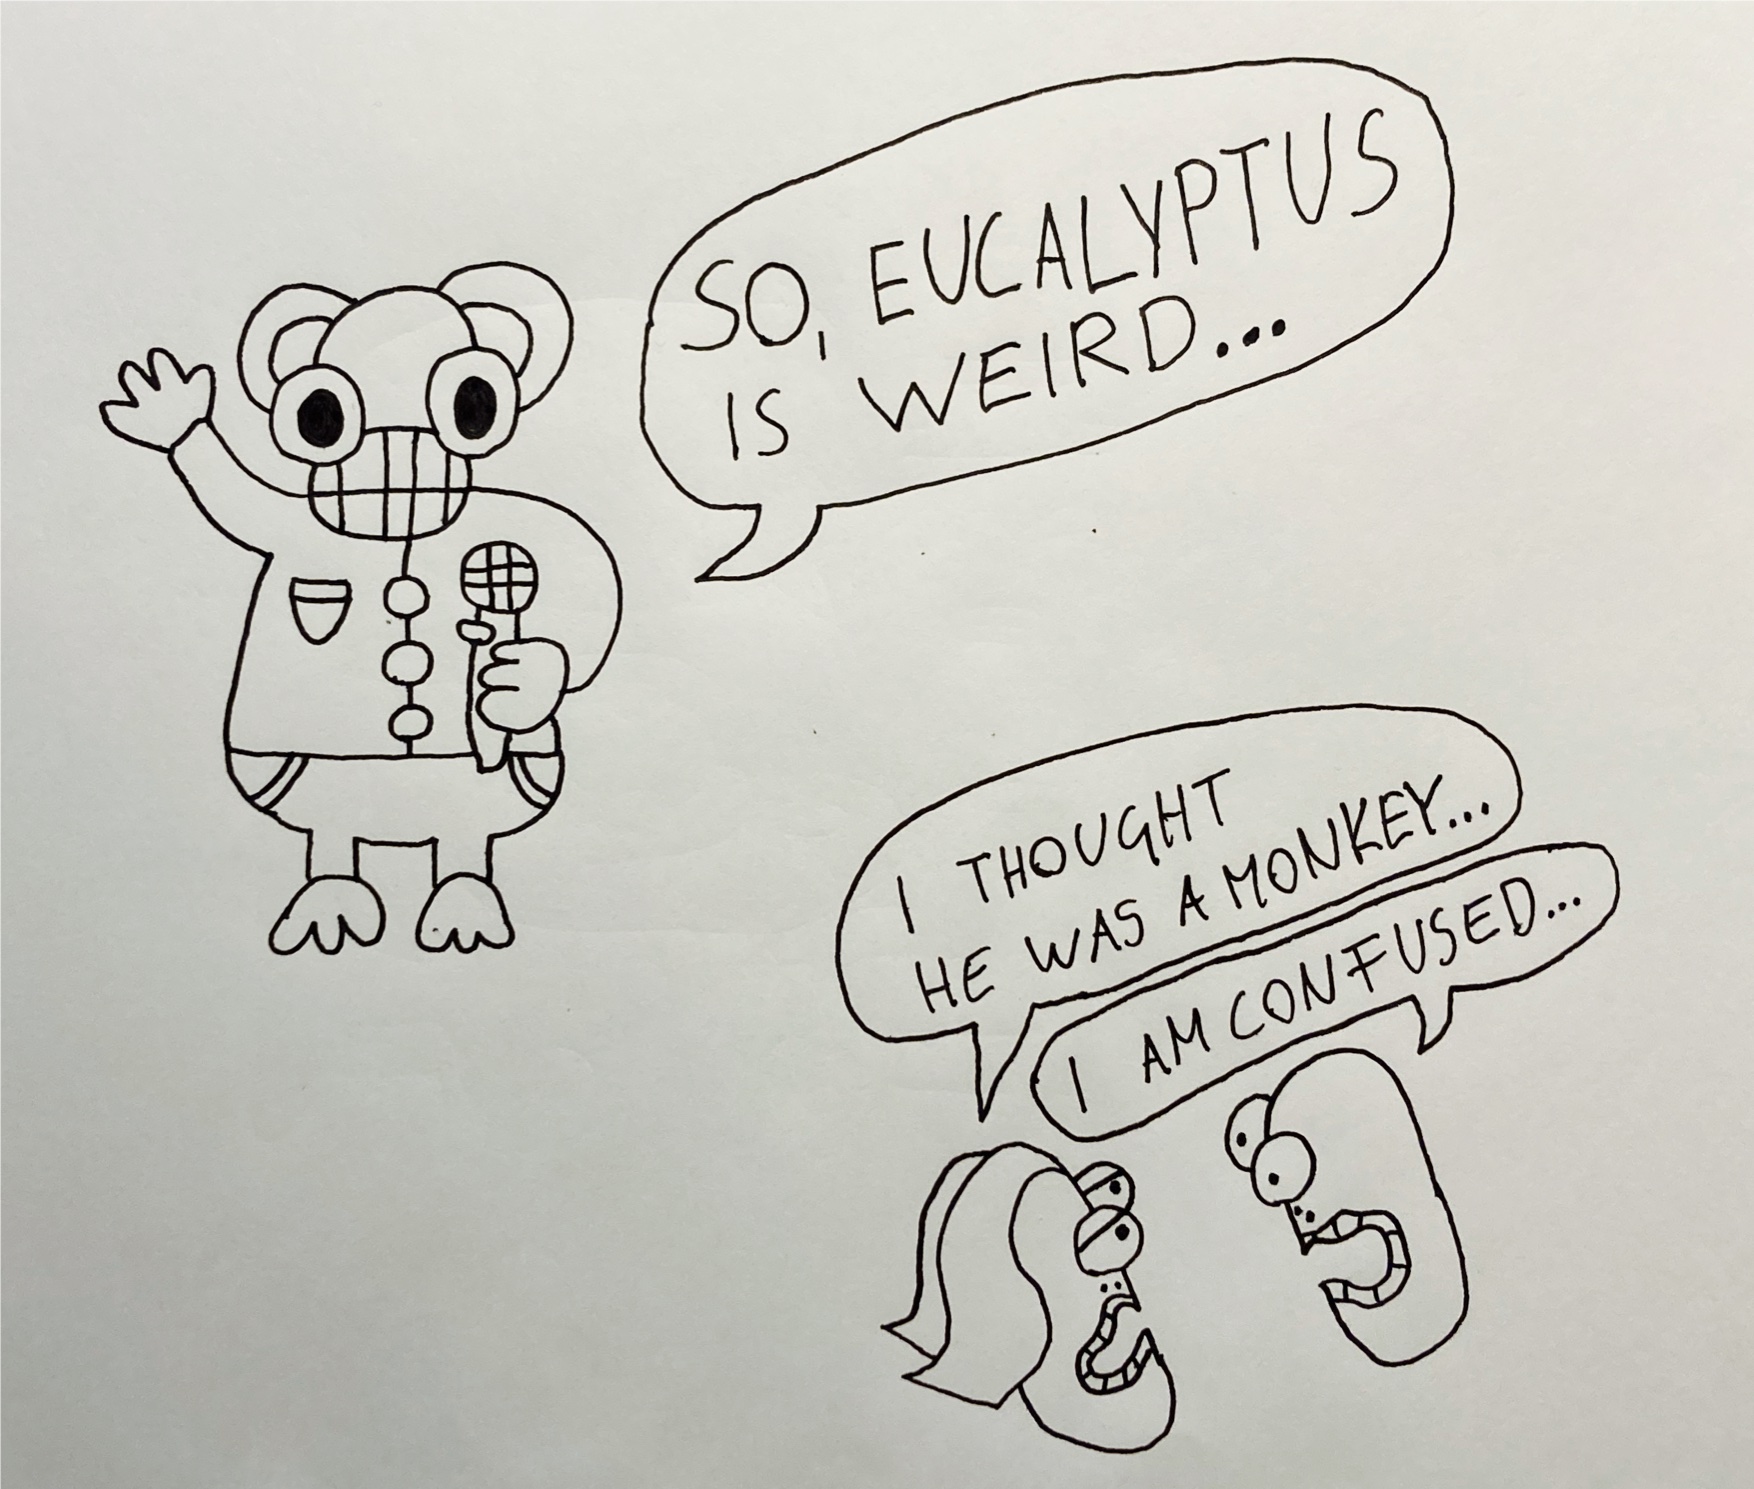 SO, EUCALYPTUS
IS WEIRD...
I THOUGHT
HE WAS A MONKEY...
I AM CONFUSED...